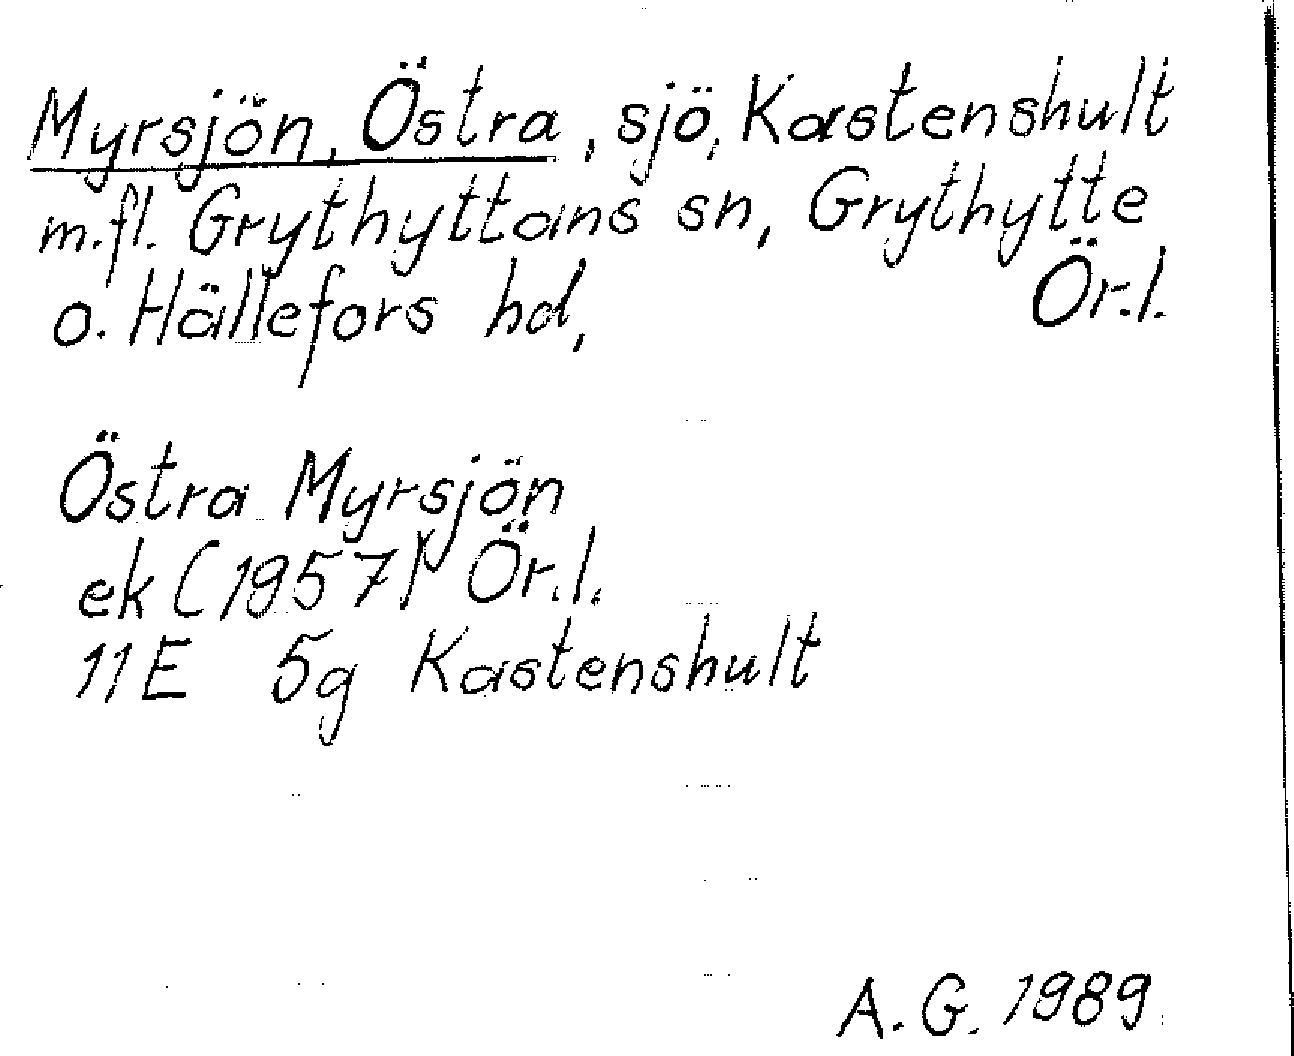 Myrsjön, Östra, sjö, Kastenshult
m.fl. Grythyttans sn, Grythytte
o. Hällefors hd, Ör.l.
Östra Myrsjön
ek (1957) Ör.l.
11E 5g Kastenshult
A.G. 1989